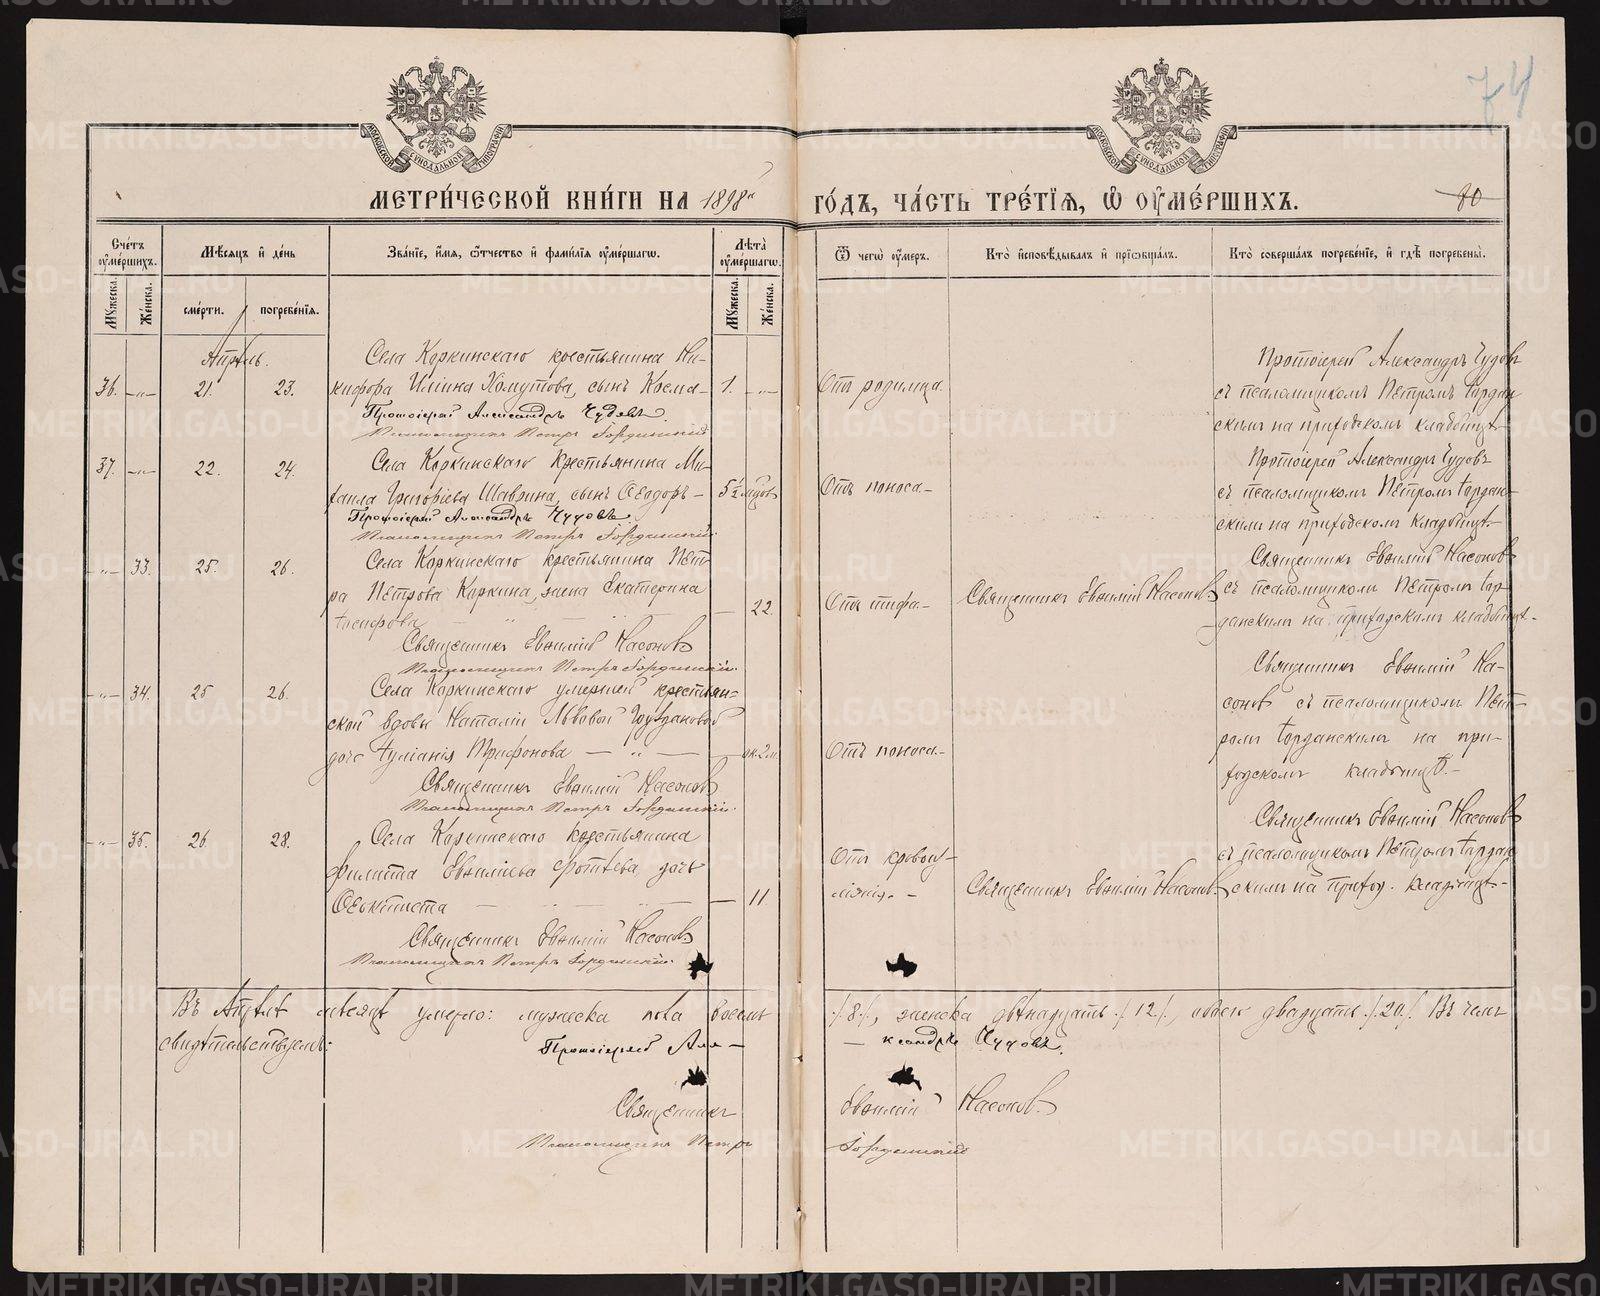 74
МЕТРИ́ЧЕСКОЙ КНИ́ГИ НА 1898й ГО́ДЪ, ЧА́СТЬ ТРЕ́ТІѦ, Ѡ ОУМЕ́РШИХЪ.
80
Сче́тъ оуме́ршихъ.
Мѣ́сяцъ и де́нь
Зва́ніе, и́мѧ, ѻ́тчество и фами́ліѧ оуме́ршагѡ.
Лѣта̀ оуме́ршагѡ.
Ѿ чегѡ̀ оу́меръ.
Кто̀ и҆сповѣ́дывалъ и҆ прїѡбща́лъ.
Кто̀ соверша́лъ погребе́ніе, и҆ гдѣ̀ погребены̀.
Мꙋ́жеска.
Же́нска.
сме́рти.
погребе́нїѧ.
Мꙋ́жеска.
Же́нска.
Апрѣль.
36. -„- 21. 23.
Села Коркинскаго крестьянина Ни-
кифора Ильина Хомутова, сынъ Косма- 1. -„-
Протоіерей Александръ Чудовъ
Псаломщикъ Петръ Горданскій
Отъ родимца.
Протоіерей Александръ Чудовъ
съ псаломщикомъ Петромъ Гордан-
скимъ на приходскомъ кладбищѣ
37. -„- 22. 24.
Села Коркинскаго крестьянина Ми-
хаила Григорьева Шаврина, сынъ Ѳеодоръ- 5½ мцовъ
Протоіерей Александръ Чудовъ.
Псаломщикъ Петръ Горданскій.
Отъ поноса.-
Протоіерей Александръ Чудовъ
съ псаломщикомъ Петромъ Гордан-
скимъ на приходскомъ кладбищѣ
-„- 33. 25. 26.
Села Коркинскаго крестьянина Пет-
ра Петрова Коркина, жена Екатерина
- 22
Священникъ Евѳимій Насоновъ
Псаломщикъ Петръ Горданскій.
Отъ тифа.-
Священникъ Евѳимій Насоновъ.
Священникъ Евѳимій Насоновъ
съ псаломщикомъ Петромъ Гор-
данскимъ на приходскомъ кладбищѣ.
-„- 34. 25 26.
Села Коркинскаго умершей крестьян-
ской вдовы Наталіи Львовой Груздановой
дочь Іуліанія Трифонова - „ - - ок. 2 м.
Священникъ Евѳимій Насоновъ
Псаломщикъ Петръ Горданскій.
Отъ поноса.-
Священникъ Евѳимій На-
соновъ съ псаломщикомъ Пет-
ромъ Горданскимъ на при-
ходскомъ кладбищѣ.-
-„- 35. 26. 28.
Села Коркинскаго крестьянина
Филиппа Евѳиміева Фотѣева, дочь
Ѳеоктиста - - 11
Священникъ Евѳимій Насоновъ
Псаломщикъ Петръ Горданскій.
Отъ кровоизліянія.-
Священникъ Евѳимій Насоновъ.
Священникъ Евѳимій Насоновъ
съ псаломщикомъ Петромъ Гордан-
скимъ на приход. кладбищѣ.-
Въ Апрѣлѣ мѣсяцѣ умерло: мужеска пола восемь /8/, женска двѣнадцать /12/, обоего двадцать /20/. Въ чемъ
свидѣтельствуемъ:
Протоіерей Але-
ксандръ Чудовъ.
Священникъ Евѳимій Насоновъ.
Псаломщикъ Петръ Горданскій
METRIKI.GASO-URAL.RU